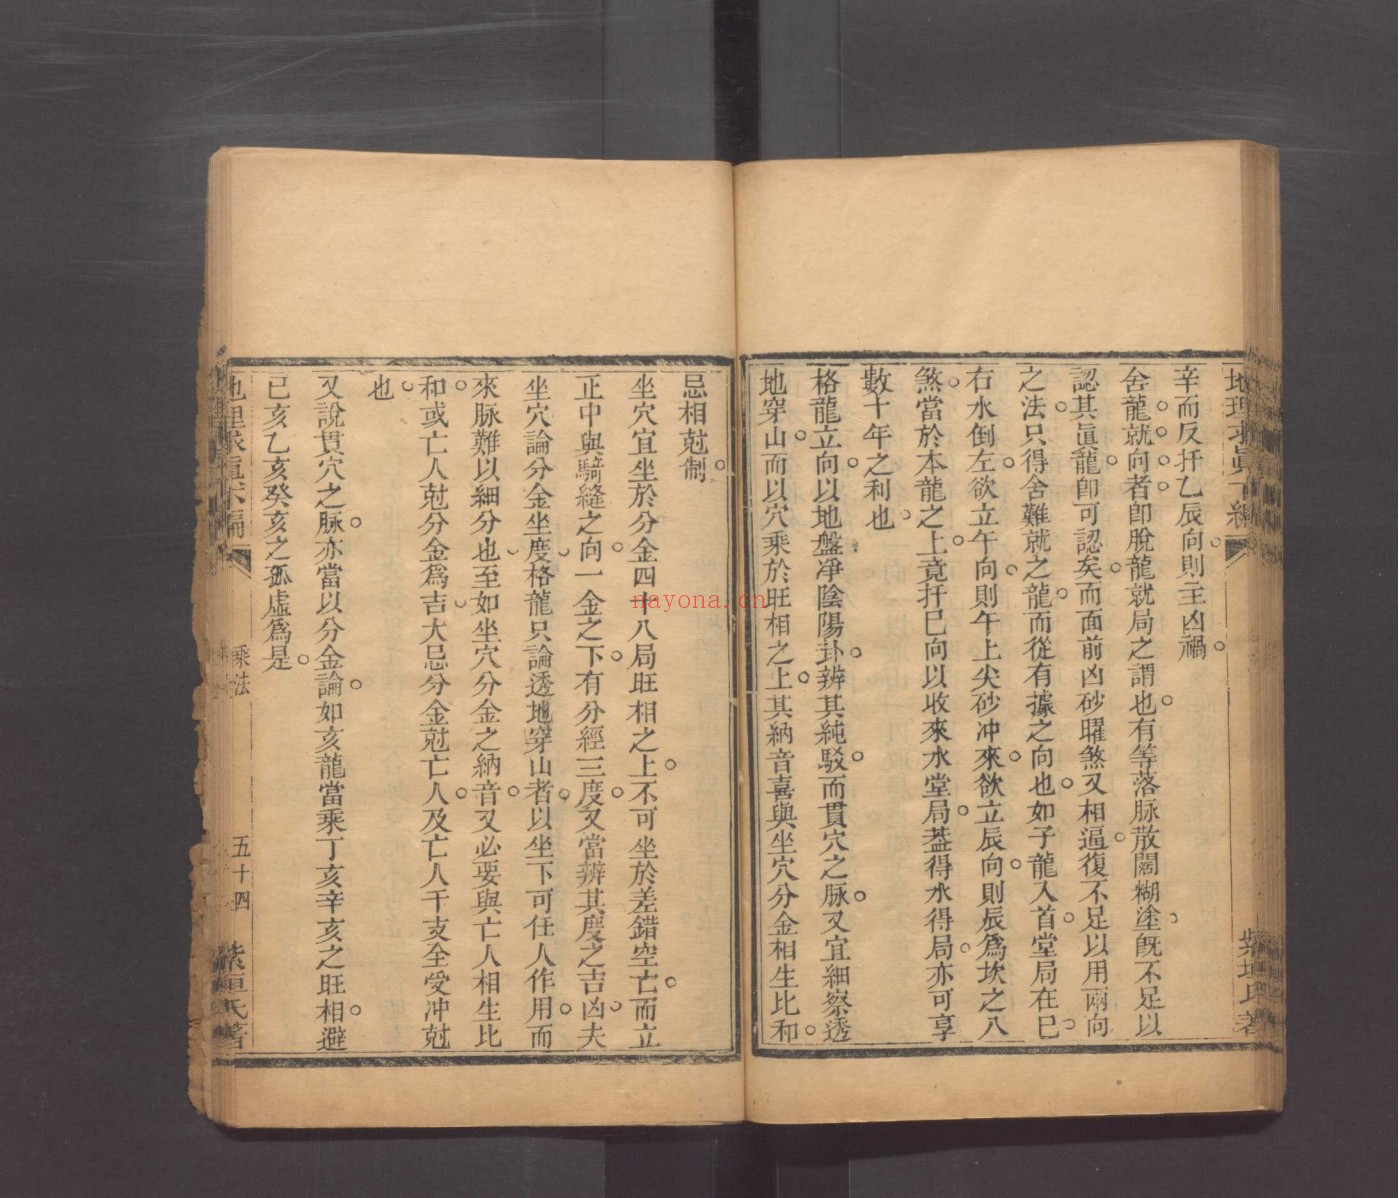 辛而反扦乙辰向則主凶禍
舍龍就向者卽脫龍就局之謂也有等落脉散闊糊塗旣不足以
認其眞龍卽可認矣而面前凶砂曜煞又相逼復不足以用兩向
之法只得舍難就之龍而從有據之向也如子龍入首堂局在巳
右水倒左欲立午向則午上尖砂冲來欲立辰向則辰爲坎之八
煞當於本龍之上竟扦巳向以收來水堂局葢得水得局亦可享
數十年之利也
格龍立向以地盤凈陰陽卦辨其純駁而貫穴之脉又宜細察透
地穿山而以穴乘於旺相之上其納音喜與坐穴分金相生比和
忌相尅制
坐穴宜坐於分金四十八局旺相之上不可坐於差錯空亡而立
正中與騎縫之向一金之下有分經三度又當辨其度之吉凶夫
坐穴論分金坐度格龍只論透地穿山者以坐下可任人作用而
來脉難以細分也至如坐穴分金之納音又必要與亡人相生比
和或亡人尅分金爲吉大忌分金尅亡人及亡人干支全受冲尅
也
又說貫穴之脉亦當以分金論如亥龍當乘丁亥辛亥之旺相避
已亥乙亥癸亥之孤虛爲是
乘法
五十四
紫垣氏著
nayona.cn